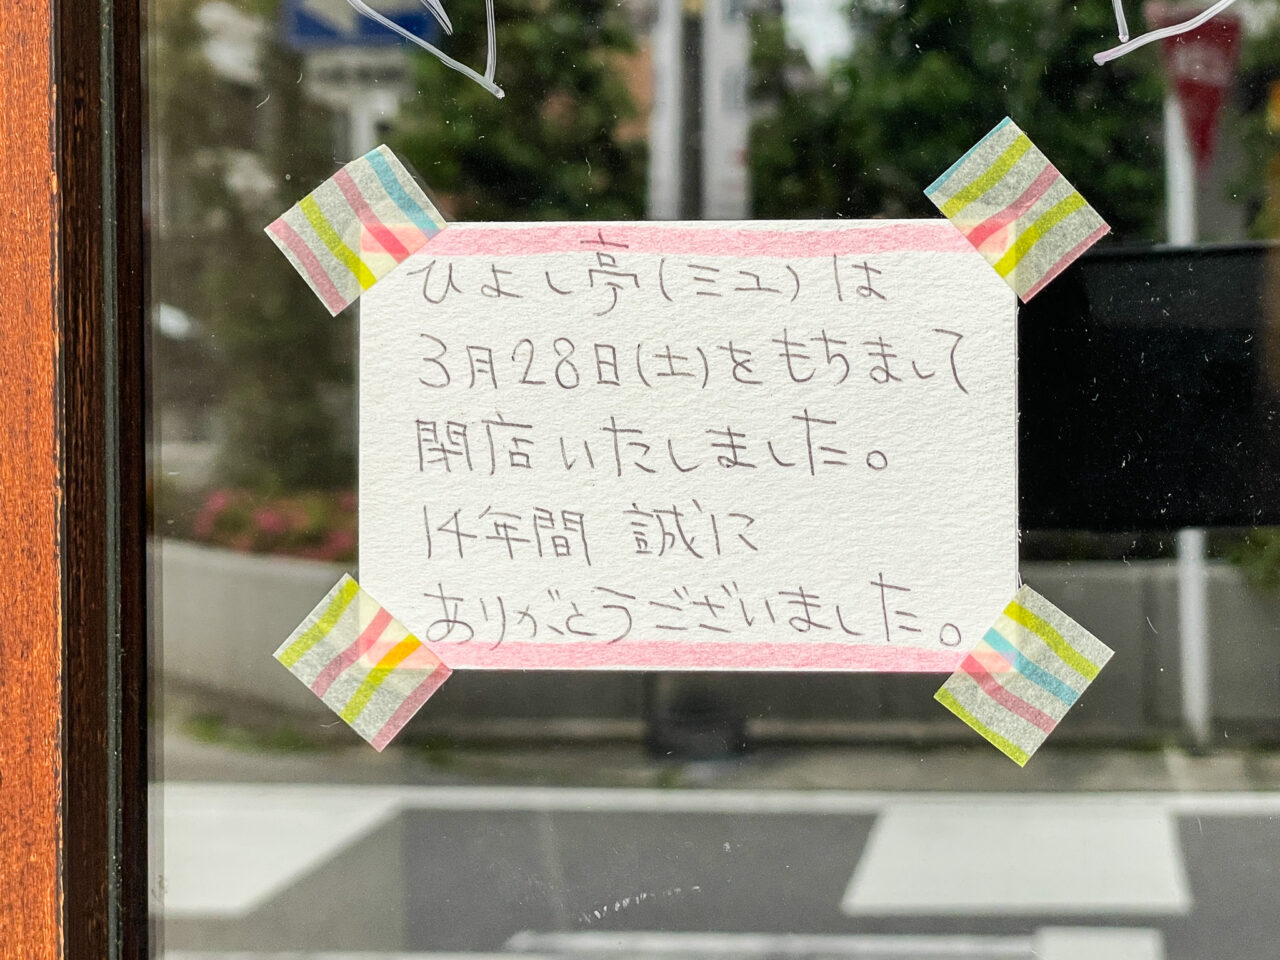 ひよし亭(ミユ)は
3月28日(土)をもちまして
閉店いたしました。
14年間 誠に
ありがとうございました。